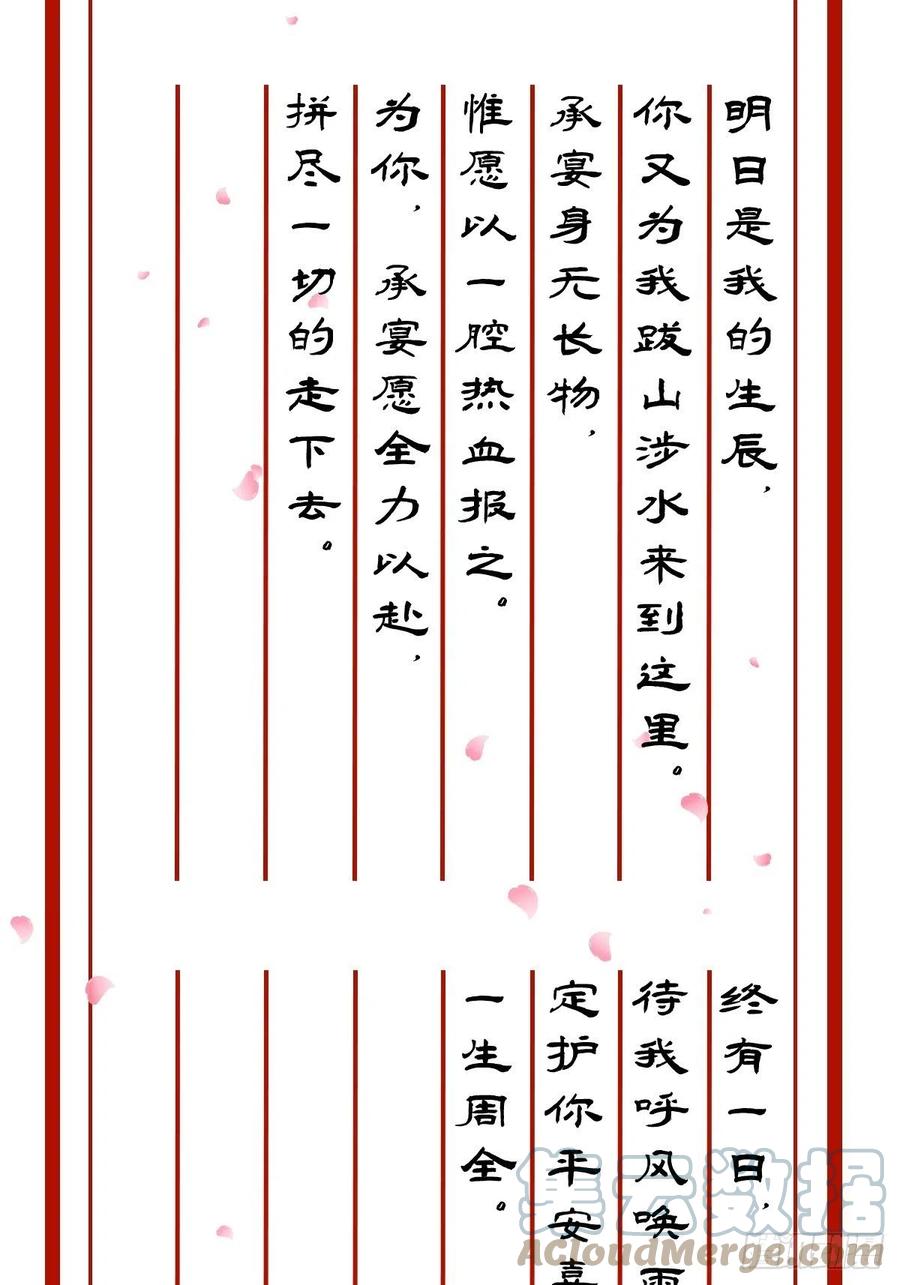 明日是我的生辰，
你又为我跋山涉水来到这里。
承宴身无长物，
惟愿以一腔热血报之。
为你，承宴愿全力以赴，
拼尽一切的走下去。
终有一日，
待我呼风唤雨
定护你平安喜
一生周全。
集云数据
ACloudMerge.com